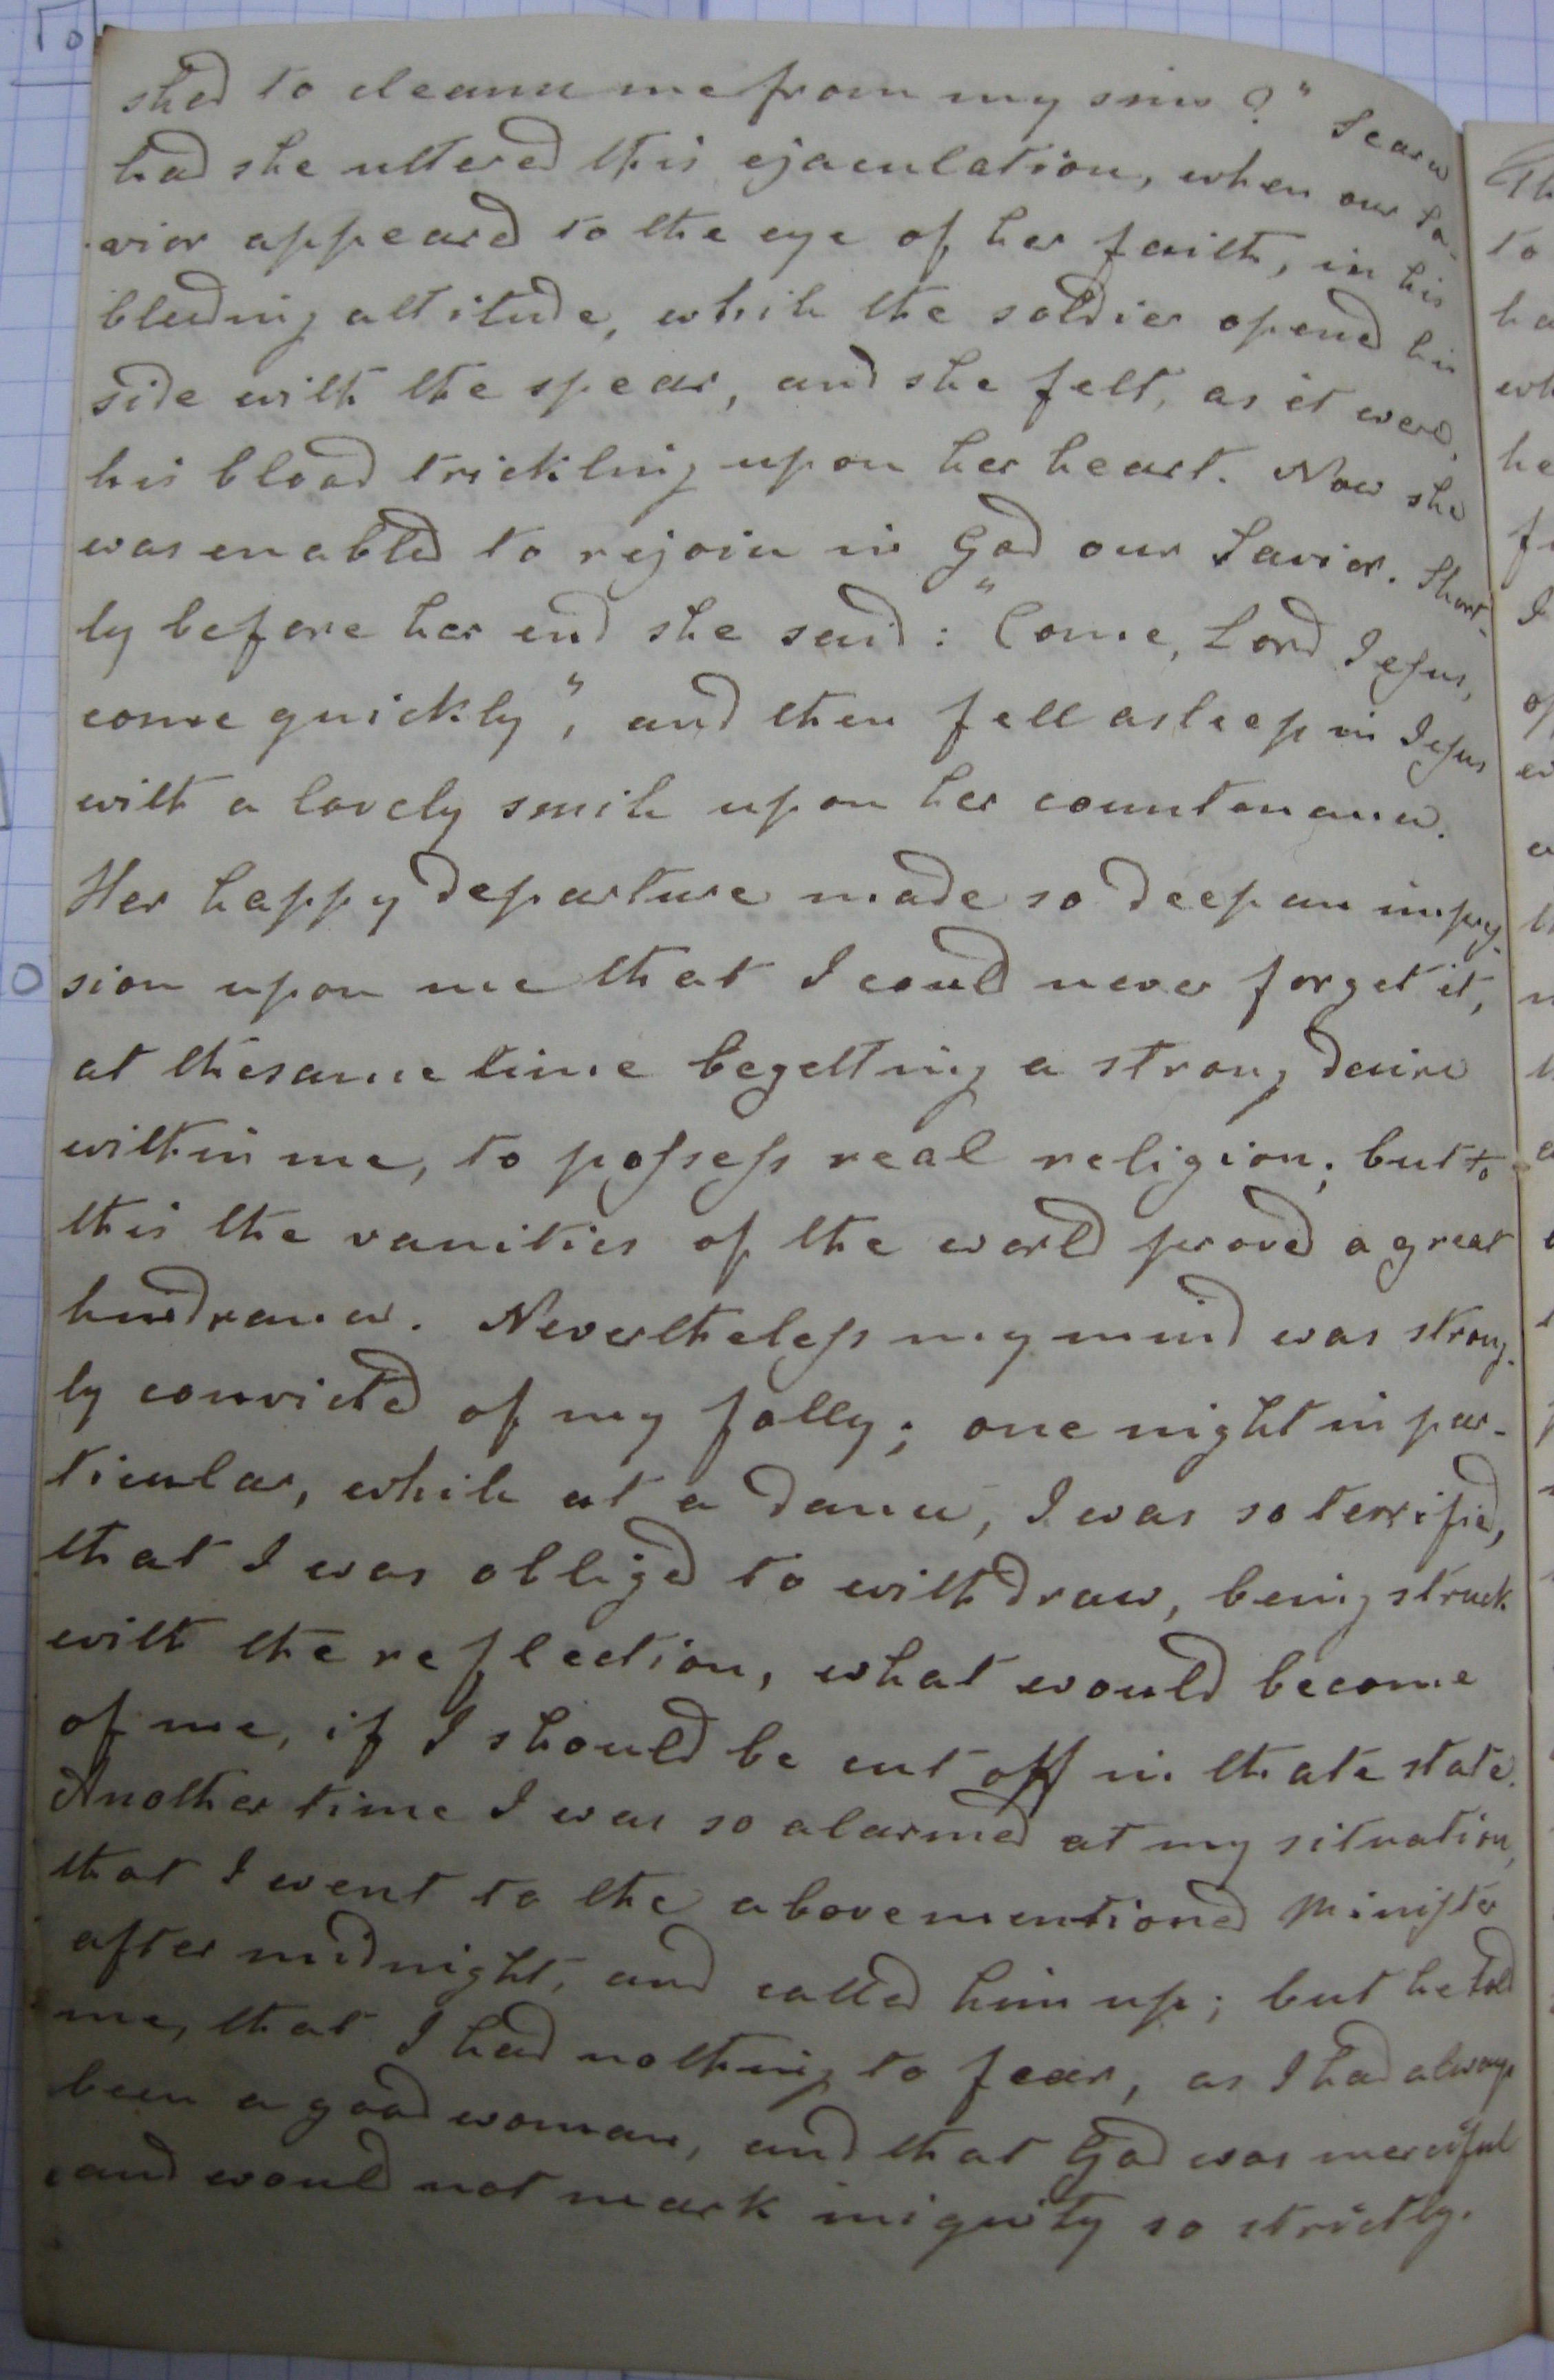 shed to cleanse me from my sins?" Scarce
had she uttered this ejaculation, when our Sa-
vior appeared to the eye of her faith, in his
bleeding attitude, while the soldier opened his
side with the spear, and she felt, as it were,
his blood trickling upon her heart. Now she
was enabled to rejoice in God our Savior. Short-
ly before her end she said: "Come, Lord Jesus,
come quickly", and then fell asleep in Jesus
with a lovely smile upon her countenance.
Her happy departure made so deep an impres-
sion upon me that I could never forget it,
at the same time begetting a strong desire
within me, to possess real religion; but to
this the vanities of the world proved a great
hindrance. Nevertheless my mind was strong-
ly convicted of my folly; one night in par-
ticular, while at a dance, I was so terrified,
that I was obliged to withdraw, being struck
with the reflection, what would become
of me, if I should be cut off in thate state.
Another time I was so alarmed at my situation,
that I went to the abovementioned Minister
after midnight, and called him up; but he told
me, that I had nothing to fear, as I had always
been a good woman, and that God was merciful
and would not mark iniquity so strictly.